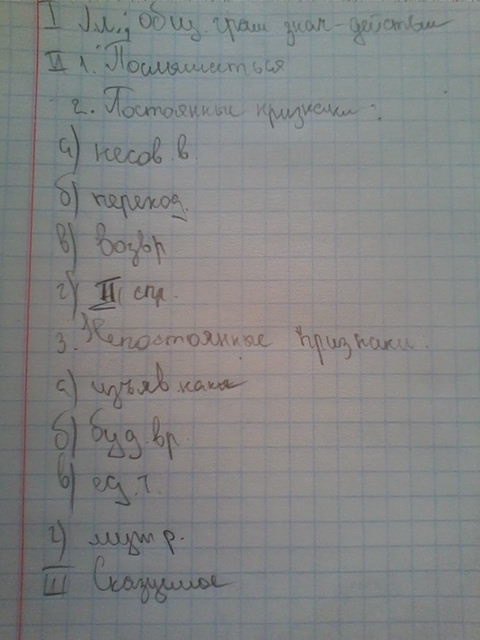 I Гл.; общ. грам знач- действия
II 1. Послышиться
2. Постоянные признаки:
а) несов.в.
б) переход.
в) возвр
г) II спр.
3. Непостоянные признаки.
а) изъяв.накл
б) буд.вр.
в) ед.ч.
г) муж р.
III Сказуемое